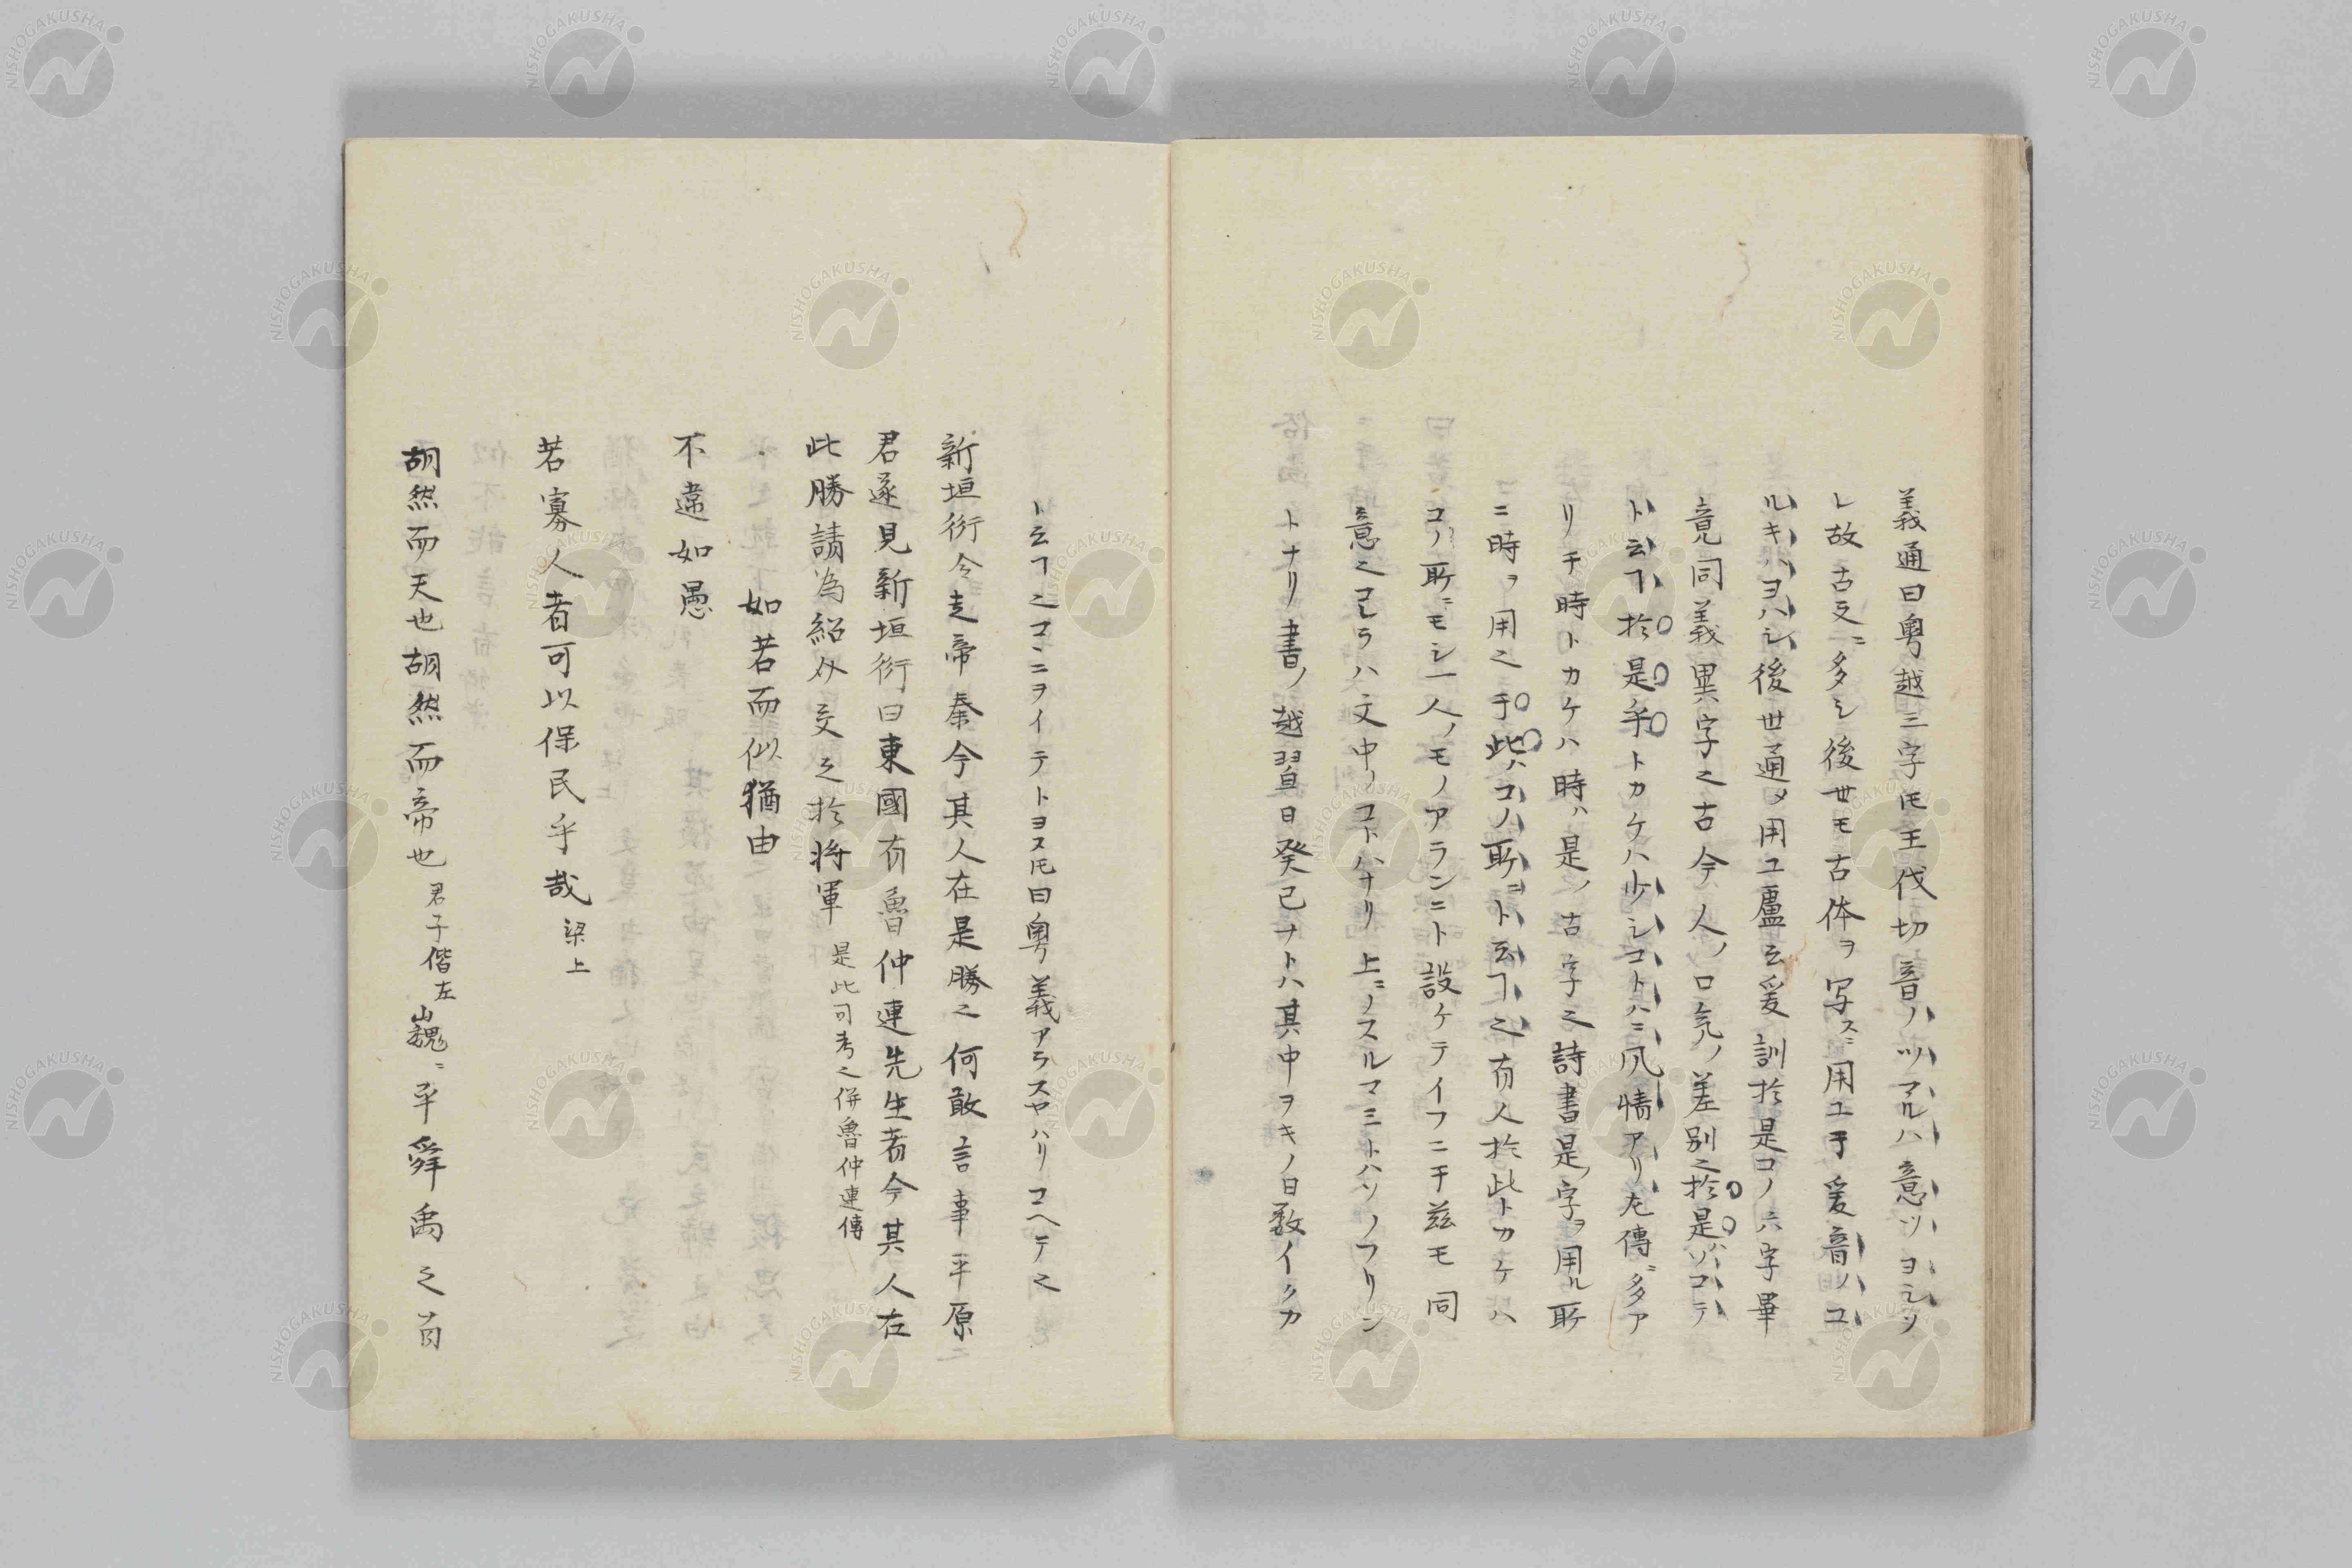 義通曰粤越三字𪜈王伐切音ノツマルハ意ツヨシソ
レ故古文ニ多シ後世モ古体ヲ写スニ用ユ于爰音ノユ
ルキハヨハシ後世通メ用ユ盧云爰訓於是コノ六字畢
竟同義異字之古今人ノ口気ノ差別之於是ハソコテ
ト云ヿ於是乎トカケハ少シコトハニ風情アリ左傳ニ多ア
リ于時トカケハ時ハ是ノ古字之詩書是ノ字ヲ用ル所
ニ時ヲ用之于此ハコノ所ニト云ヿ之有人於此トカケハ
コノ所ニモシ一人ノモノアランニト設ケテイフニ于茲モ同
意之コレラハ文中ノコトハナリ上ニノスルマミトハソノフリン
トナリ書ノ越翌日癸已ナトハ其中ヲキノ日数イクカ
ト云ヿ之コヽニヲイテトヨス𪜈曰粤義アラスヤハリコヘテ之
新垣衍令走帝秦今其人在是勝之何敢言事平原
君遂見新垣衍曰東國有魯仲連先生者今其人在
此勝請為紹介交之於将軍 是此可考之併魯仲連傳
如若而似猶由
不違如愚
若寡人者可以保民乎哉 梁上
胡然而天也胡然而帝也 君子偕左 巍ニ平舜禹之首